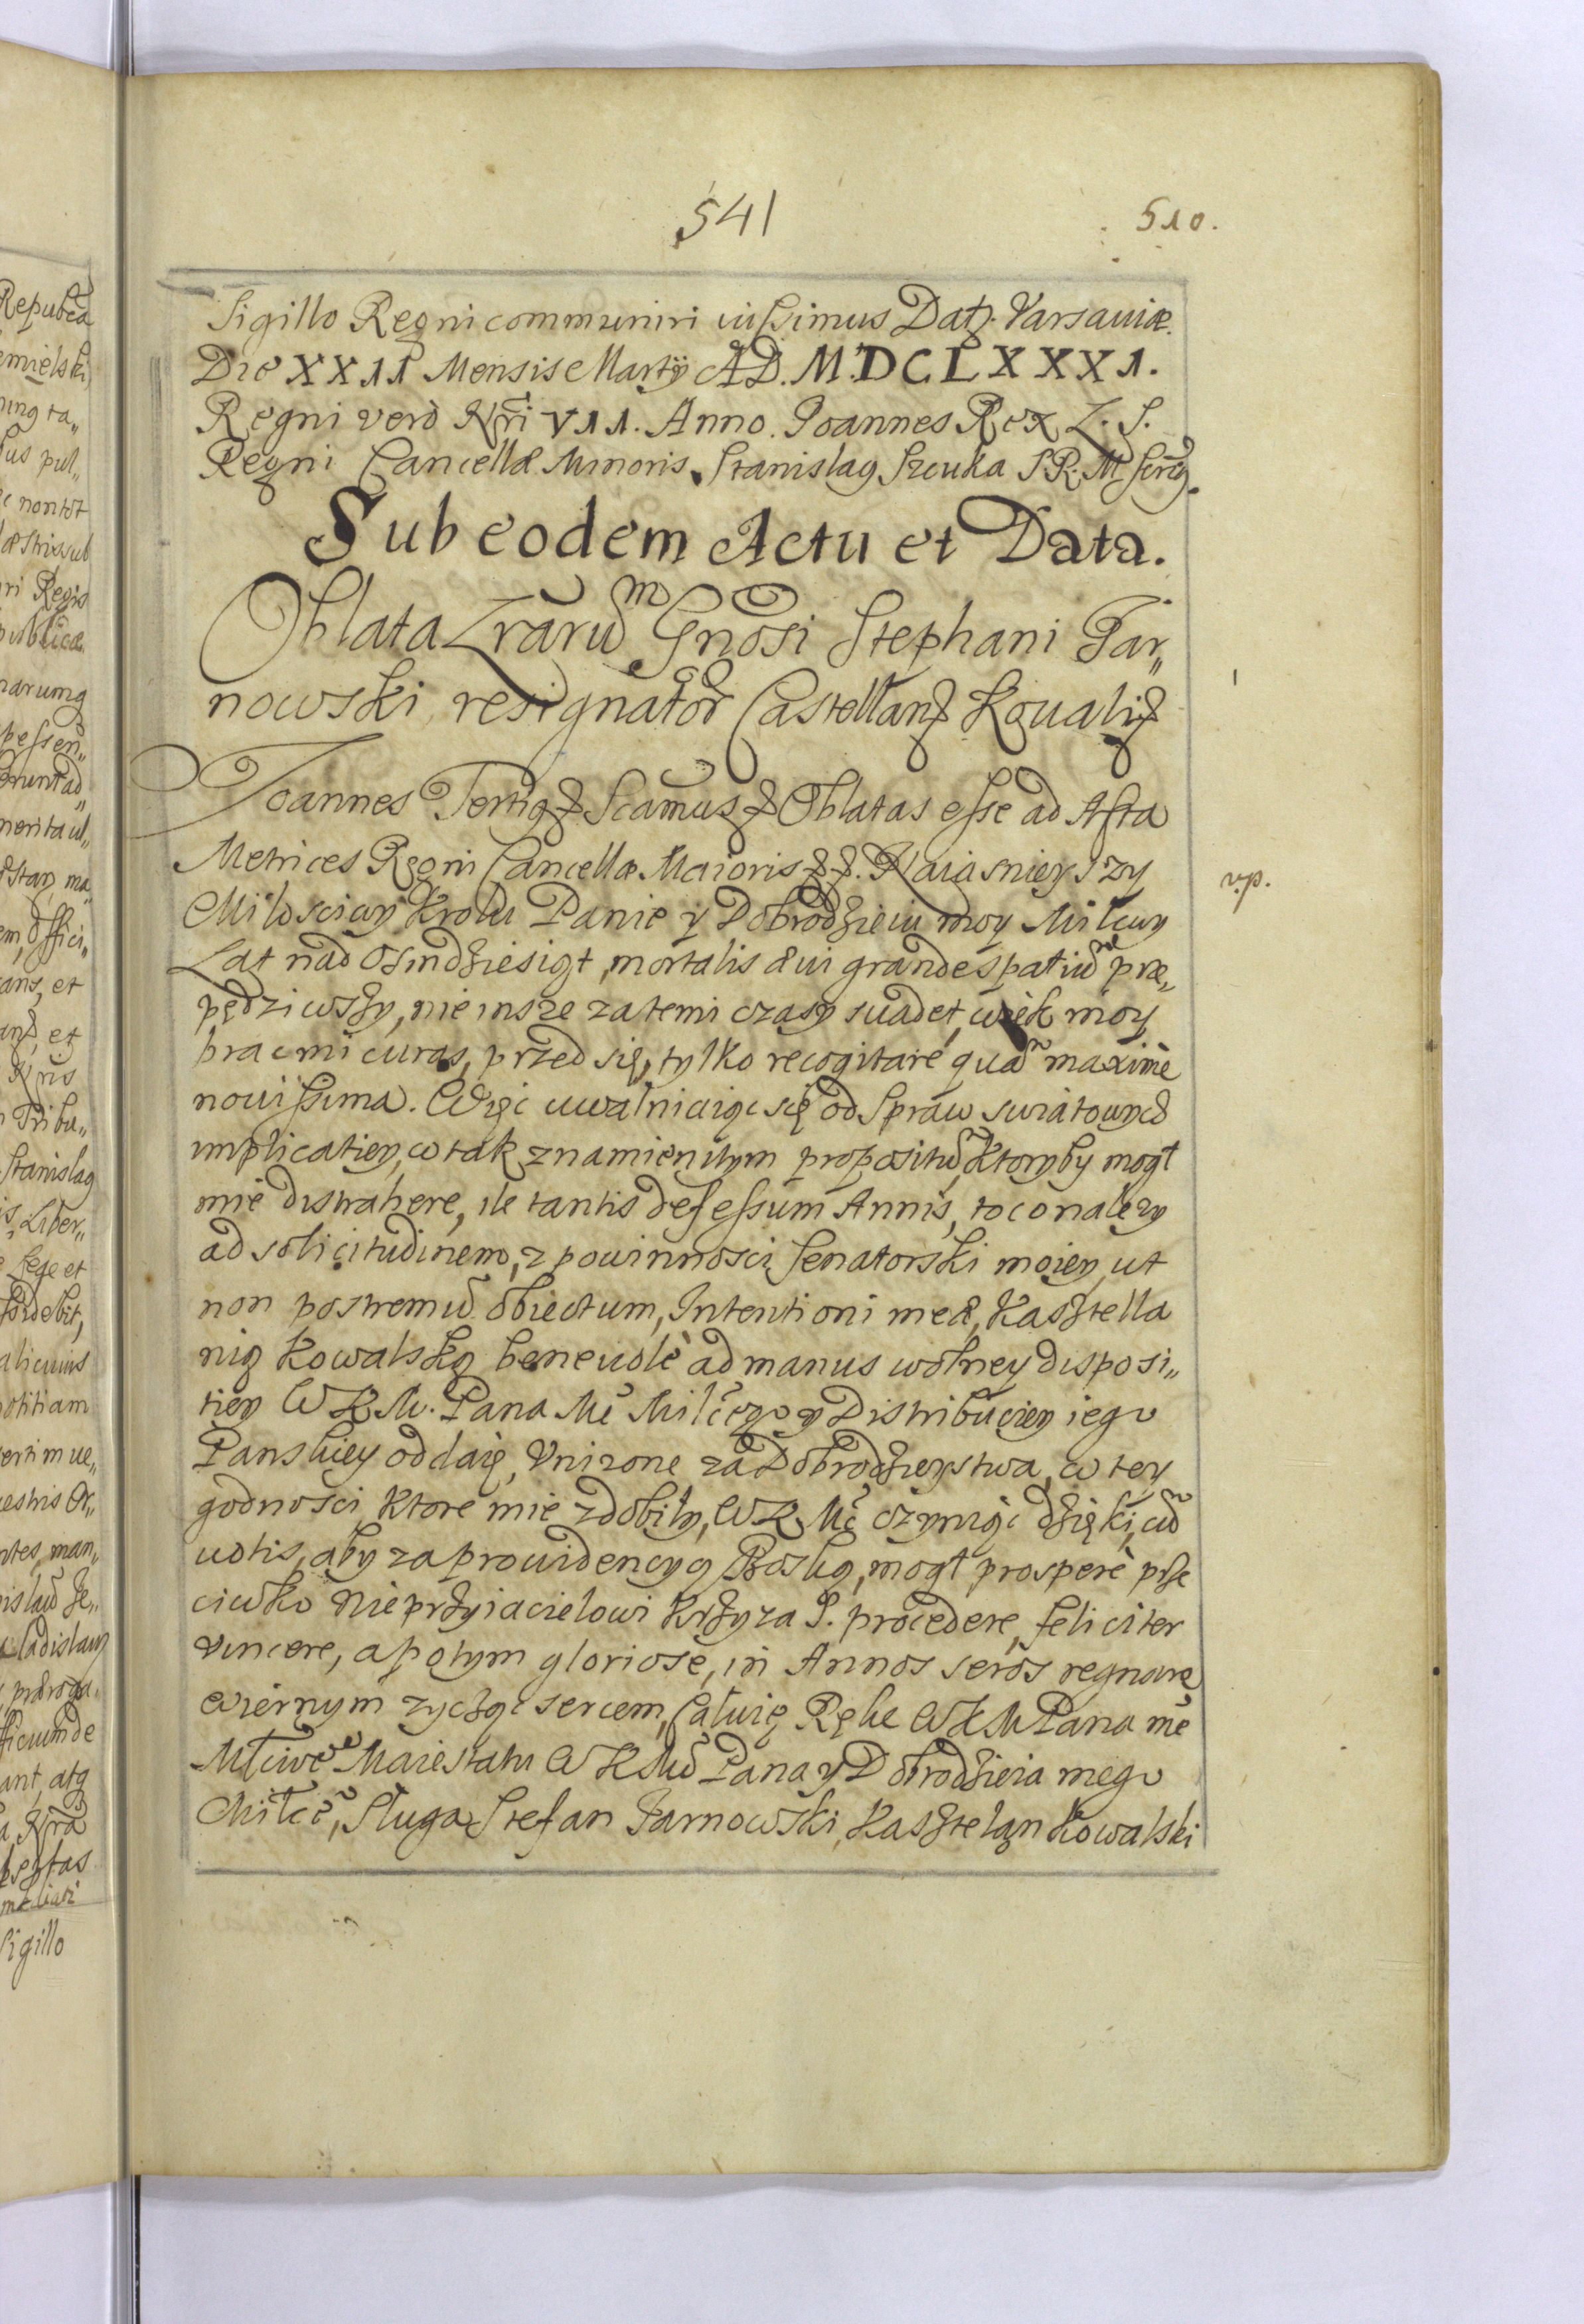 541
510.
Sigillo Regni communiri iussimus Datz. Varsauiæ.
Die XXII Mensis Martij AD. M.DCLXXXI.
Regni verò Nri VII. Anno. Joannes Rex L. S.
Regni Cancellæ Minoris. Stanislaq Szcuka S R. M. Scrq.
Sub eodem Actu et Data.
Oblata Lrarum Gnosi Stephani Tar„
nowski, resignator Castellanȝ Koualiȝ
Joannes Tertiq ȝ Scamus ȝ Oblatas esse ad Acta
Metrices Regni Cancellæ Maioris ȝ ȝ. Naiasnieyszy
v.p.
Milosciwy Krolu Panie y Dobrodzieiu moy Milcwy
Lat nad Osmdziesiąt, mortalis æui grande spatiũ prze„
pędziwszy, nie insze zatemi czasy suadet, wiek moy
prae mi curas, przed się, tylko recogitare quã maximè
nouissima. Więc uwalniaiąc się od spraw swiatowych
implicatiey, w tak znamienitym propositũ, ktoryby mogł
mie distrahere, ile tantis defessum Annis, to co nalezy
ad solicitudinem, z powinnosci Senatorski moiey, ut
non postremũ obiectum, Intentioni meæ, Kasztella
nią Kowalską beneuolè ad manus wolney disposi„
tiey W K M. Pana Mẽ Milcẽgo y Distribuciey iego
Panskiey oddaię, Unizone za Dobrodzieystwa, w tey
godnosci, ktore mie zdobiły, W K Mc̃ czyniąc dzięki, cũ
uotis, aby za prouidencyą Boską, mogł prosperè prze
ciwko Nieprzyiacielowi Krzyza S. procedere, feliciter
vincere, a potym gloriosè, in Annos seros regnare
wiernym zycząc sercem, Całuię Rękę W K M Pana mẽ
Mtiwẽ Maiestatu W K Mc̃ Pana y Dobrodzieia mego
Milcẽ, Sługa Stefan Tarnowski, Kasztelan Kowalski